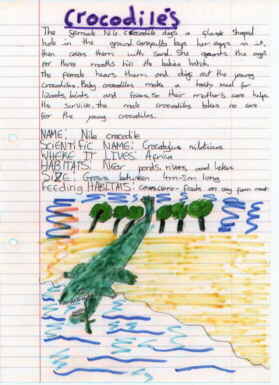 Crocodile's
The female Nile Crocodile digs a shaped
hole in the ground lays her eggs in it,
then covers them with sand. She guards the eggs
for three months till its babies hatch.
The female hears them and digs out the young
crocodiles. Baby crocodiles make a tasty meal for
lizards, birds and foxes. So their mothers care helps
the survive. the male crocodiles takes no care
for the young crocodiles.
NAME: Nile crocodile
SCIENTIFIC NAME: Crocodylus niloticus
WHERE IT LIVES: Africa
HABITATS: Near ponds, rivers, and lakes
SIZE: Grows between long
Feeding HABITATS: carnivore - feeds on any